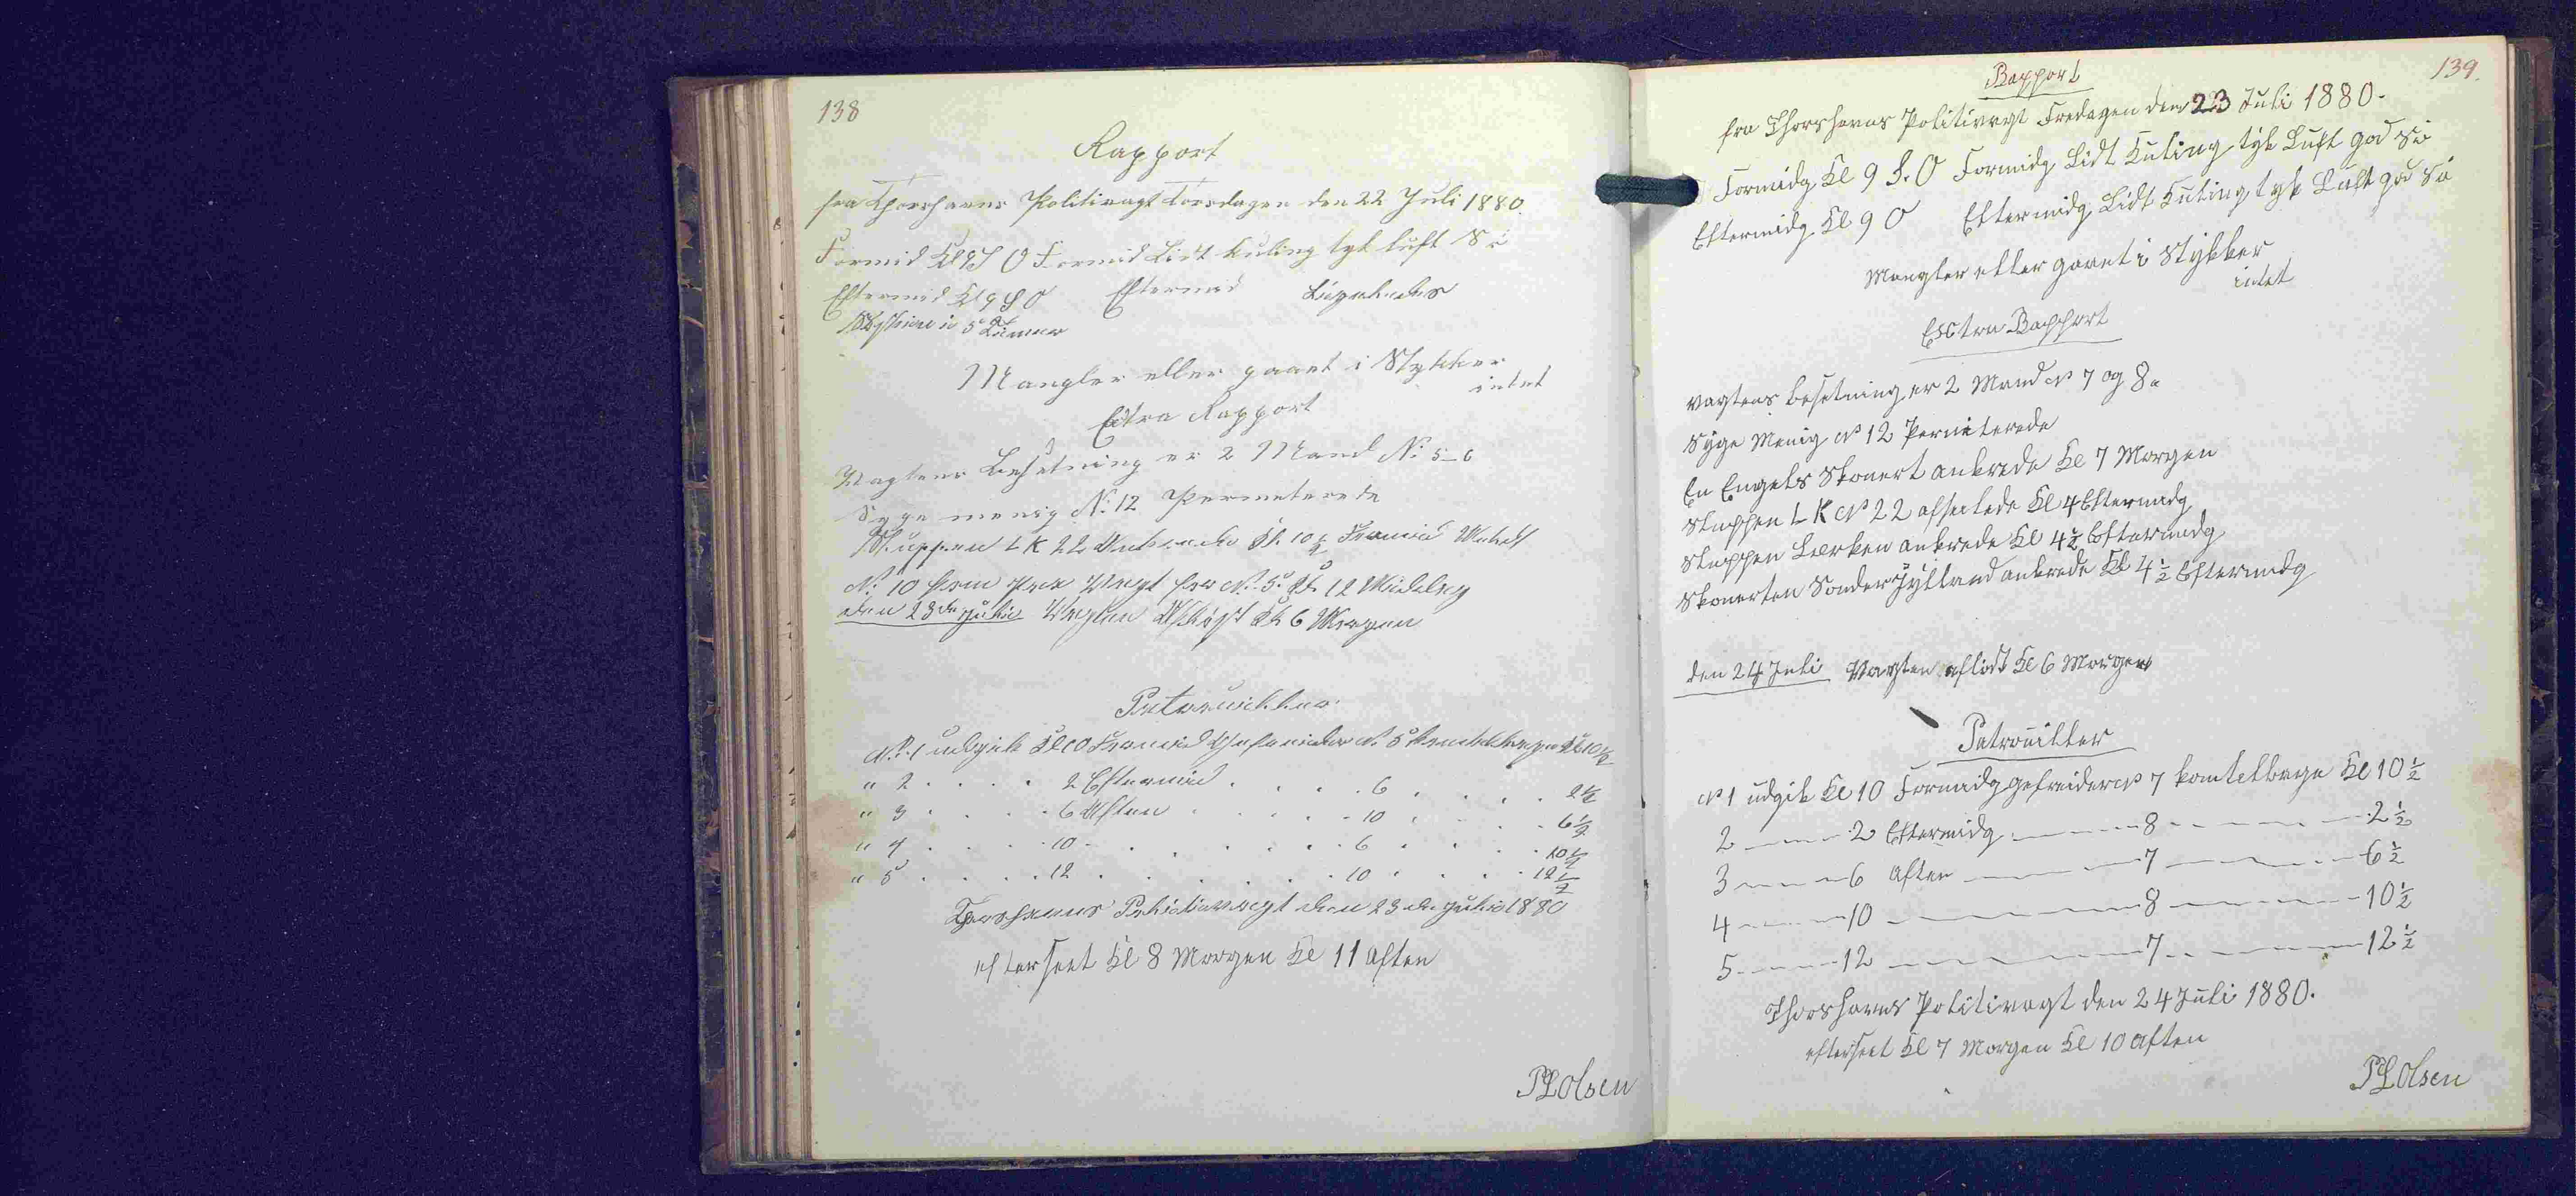 138
Rapport
fra Thorshavns Politivagt Torsdagen den 22 Juli 1880.
Formid Kl 9 S O Formid Lidt Kuling tyk luft Sø
Eftermid Kl 9 S O Eftermid Ligeledes
i 5 Timer
Mangler eller gaaet i Stykker
intet
Extra Rapport
Vagtens Besætning er 2 Mand No 5-6
Syge menig No 12 Permeterede
Sluppen LK 22 Ankrede Kl. 10 1/2 Formid
No 10 Vagt for No 5. Kl. 12 Middag
den 23de Juli Vagten Afløst Kl 6 Morgen
Patrouiller
No 1 udgik Kl 10 Formid Gefreider No 5 Kom tilbage Kl 10 1/2
" 2 . . . . 2 Eftermid . . . . 6 . . . . 2 1/2
" 3 . . . . 6 Aften . . . . 10 . . . . 6 1/2
" 4 . . . . 10 . . . . 6 . . . . 10 1/2
" 5 . . . . 12 . . . . 10 . . . . 12 1/2
Thorshavns Politivagt den 23de Juli 1880
efterseet Kl 8 Morgen Kl 11 Aften
PLOlsen
139.
Rapport
fra Thorshavns Politivagt Fredagen den 23 Juli 1880.
Formidg Kl 9 S. O Formidg Lidt Kuling tyk Luft god Sø
Eftermidg Kl 9 O Eftermidg Lidt Kuling tyk Luft god Sø
Mangler eller gaaet i Stykker
intet
Extra Rapport
Vagtens Besetning er 2 Mand No 7 og 8.
Syge Menig No 12 Permiterede
En Engelsk Skonert ankrede Kl 7 Morgen
Sluppen L K No 22 afseilede Kl 4 Eftermidg
Sluppen Lærken ankrede Kl 4 1/2 Eftermidg
Skonerten Sønder Jylland ankrede Kl 4 1/2 Eftermidg
den 24 Juli Vagten afløst Kl 6 Morgen
Patrouiller
No 1 udgik Kl 10 Formidg gefreider No 7 kom tilbage Kl 10 1/2
2 - - - 2 Eftermidg - - - 8 - - - 2 1/2
3 - - - 6 Aften - - - 7 - - - 6 1/2
4 - - - 10 - - - 8 - - - 10 1/2
5 - - - 12 - - - 7 - - - 12 1/2
Thorshavns Politivagt den 24 Juli 1880.
efterseet Kl 7 Morgen Kl 10 Aften
PLOlsen